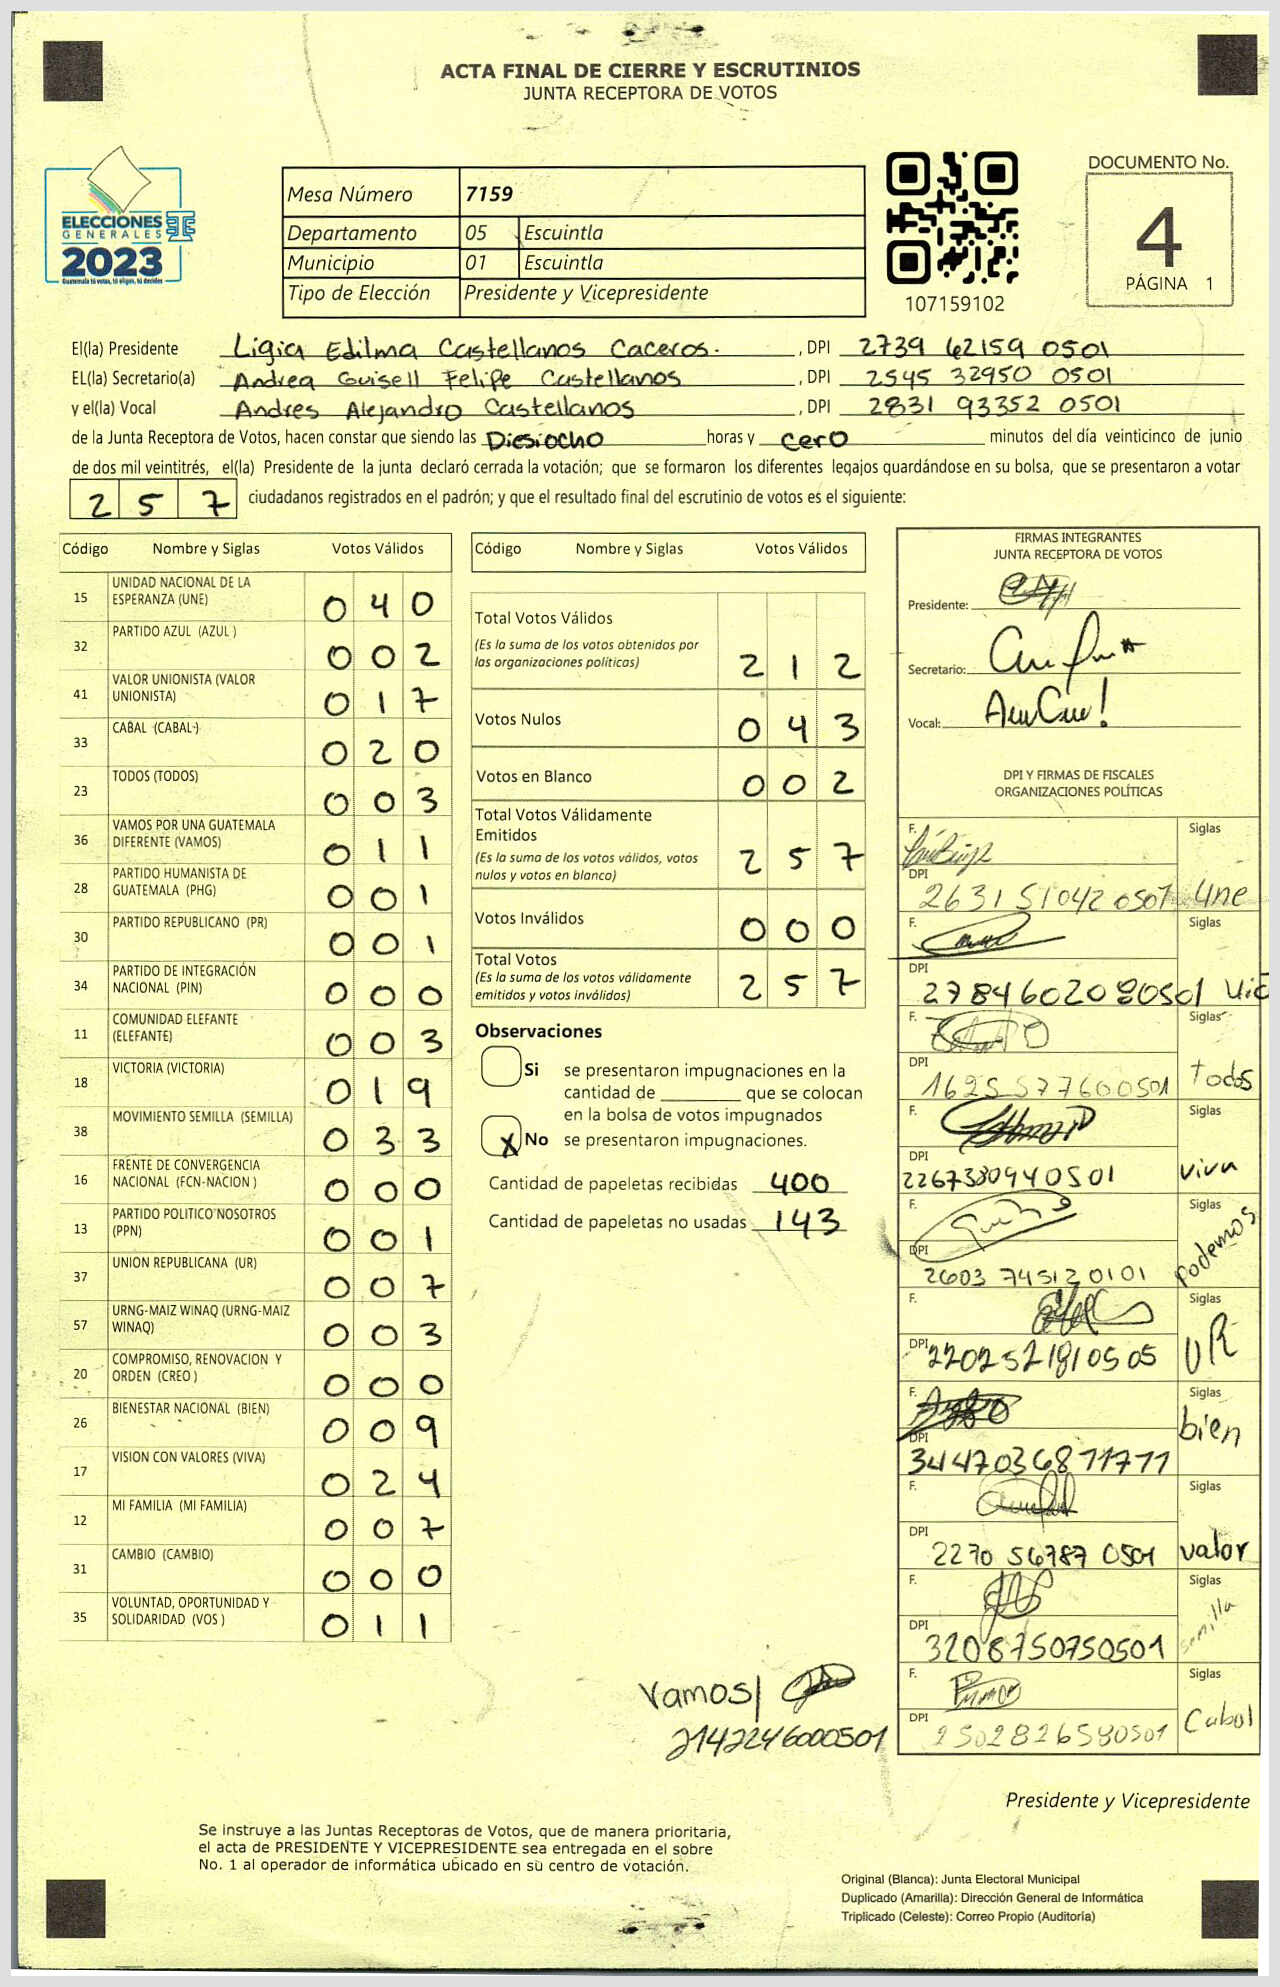 ACTA FINAL DE CIERRE Y ESCRUTINIOS
JUNTA RECEPTORA DE VOTOS
ELECCIONES
GENERALES
2023
Guatemala tú votas, tú eliges, tú decides
Mesa Número 7159
Departamento 05 Escuintla
Municipio 01 Escuintla
Tipo de Elección Presidente y Vicepresidente
107159102
DOCUMENTO No.
4
PÁGINA 1
El(la) Presidente Ligia Edilma Castellanos Caceros. , DPI 2739 62159 0501
EL(la) Secretario(a) Andrea Guisell Felipe Castellanos , DPI 2545 32950 0501
y el(la) Vocal Andres Alejandro Castellanos , DPI 2831 93352 0501
de la Junta Receptora de Votos, hacen constar que siendo las Diesiocho horas y cero minutos del día veinticinco de junio
de dos mil veintitrés, el(la) Presidente de la junta declaró cerrada la votación; que se formaron los diferentes legajos guardándose en su bolsa, que se presentaron a votar
257 ciudadanos registrados en el padrón; y que el resultado final del escrutinio de votos es el siguiente:
Código Nombre y Siglas Votos Válidos
15 UNIDAD NACIONAL DE LA ESPERANZA (UNE) 040
32 PARTIDO AZUL (AZUL ) 002
41 VALOR UNIONISTA (VALOR UNIONISTA) 017
33 CABAL (CABAL) 020
23 TODOS (TODOS) 003
36 VAMOS POR UNA GUATEMALA DIFERENTE (VAMOS) 011
28 PARTIDO HUMANISTA DE GUATEMALA (PHG) 001
30 PARTIDO REPUBLICANO (PR) 001
34 PARTIDO DE INTEGRACIÓN NACIONAL (PIN) 000
11 COMUNIDAD ELEFANTE (ELEFANTE) 003
18 VICTORIA (VICTORIA) 019
38 MOVIMIENTO SEMILLA (SEMILLA) 033
16 FRENTE DE CONVERGENCIA NACIONAL (FCN-NACION ) 000
13 PARTIDO POLITICO NOSOTROS (PPN) 001
37 UNION REPUBLICANA (UR) 007
57 URNG-MAIZ WINAQ (URNG-MAIZ WINAQ) 003
20 COMPROMISO, RENOVACION Y ORDEN (CREO ) 000
26 BIENESTAR NACIONAL (BIEN) 009
17 VISION CON VALORES (VIVA) 024
12 MI FAMILIA (MI FAMILIA) 007
31 CAMBIO (CAMBIO) 000
35 VOLUNTAD, OPORTUNIDAD Y SOLIDARIDAD (VOS ) 011
Código Nombre y Siglas Votos Válidos
Total Votos Válidos 212
(Es la suma de los votos obtenidos por
las organizaciones políticas)
Votos Nulos 043
Votos en Blanco 002
Total Votos Válidamente
Emitidos 257
(Es la suma de los votos válidos, votos
nulos y votos en blanco)
Votos Inválidos 000
Total Votos 257
(Es la suma de los votos válidamente
emitidos y votos inválidos)
Observaciones
Si se presentaron impugnaciones en la
cantidad de ________ que se colocan
en la bolsa de votos impugnados
X No se presentaron impugnaciones.
Cantidad de papeletas recibidas 400
Cantidad de papeletas no usadas 143
FIRMAS INTEGRANTES
JUNTA RECEPTORA DE VOTOS
Presidente:
Secretario:
Vocal:
DPI Y FIRMAS DE FISCALES
ORGANIZACIONES POLÍTICAS
F. Siglas
DPI 2631 51042 0501 Une
F. Siglas
DPI 2784602080501 Vic
F. Siglas
DPI 1625577600501 todos
F. Siglas
DPI 2267380940501 viva
F. Siglas
DPI 2603 74512 0101 podemos
F. Siglas
DPI 2202521810505 UR
F. Siglas
DPI 3447036811711 bien
F. Siglas
DPI 2270 56787 0501 valor
F. Siglas
DPI 3208750750501 semilla
F. Siglas
DPI 2502826580501 Cabal
Vamos
2142246000501
Presidente y Vicepresidente
Se instruye a las Juntas Receptoras de Votos, que de manera prioritaria,
el acta de PRESIDENTE Y VICEPRESIDENTE sea entregada en el sobre
No. 1 al operador de informática ubicado en su centro de votación.
Original (Blanca): Junta Electoral Municipal
Duplicado (Amarilla): Dirección General de Informática
Triplicado (Celeste): Correo Propio (Auditoría)